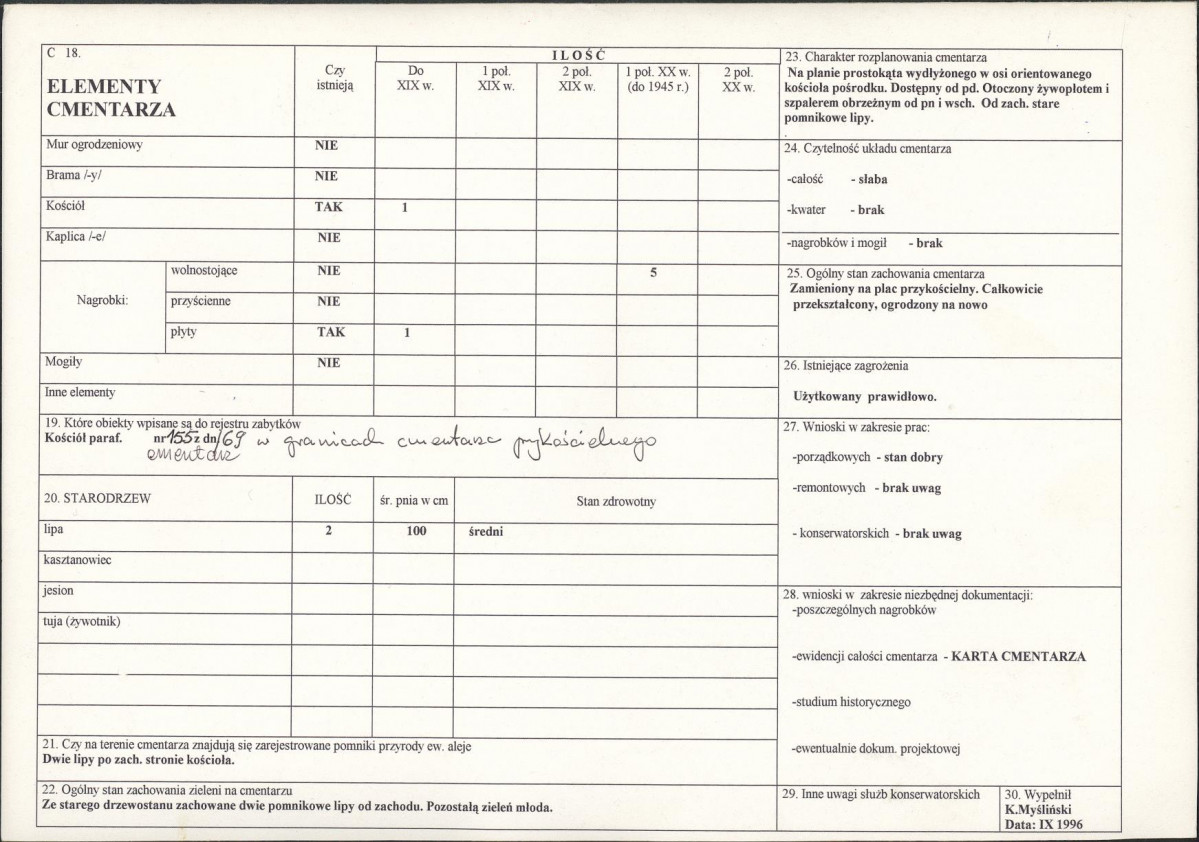 C 18.
ELEMENTY
CMENTARZA
Czy
istnieją
ILOŚĆ
Do
XIX w.
1 poł.
XIX w.
2 poł.
XIX w.
1 poł. XX w.
(do 1945 r.)
2 poł.
XX w.
Mur ogrodzeniowy NIE
Brama /-y/ NIE
Kościół TAK 1
Kaplica /-e/ NIE
Nagrobki:
wolnostojące NIE 5
przyścienne NIE
płyty TAK 1
Mogiły NIE
Inne elementy
19. Które obiekty wpisane są do rejestru zabytków
Kościół paraf. nr 155 z dn /69 w granicach cmentarza przykościelnego
cmentarz
20. STARODRZEW ILOŚĆ śr. pnia w cm Stan zdrowotny
lipa 2 100 średni
kasztanowiec
jesion
tuja (żywotnik)
21. Czy na terenie cmentarza znajdują się zarejestrowane pomniki przyrody ew. aleje
Dwie lipy po zach. stronie kościoła.
22. Ogólny stan zachowania zieleni na cmentarzu
Ze starego drzewostanu zachowane dwie pomnikowe lipy od zachodu. Pozostałą zieleń młoda.
23. Charakter rozplanowania cmentarza
Na planie prostokąta wydłyżonego w osi orientowanego
kościoła pośrodku. Dostępny od pd. Otoczony żywopłotem i
szpalerem obrzeżnym od pn i wsch. Od zach. stare
pomnikowe lipy.
24. Czytelność układu cmentarza
-całość - słaba
-kwater - brak
-nagrobków i mogił - brak
25. Ogólny stan zachowania cmentarza
Zamieniony na plac przykościelny. Całkowicie
przekształcony, ogrodzony na nowo
26. Istniejące zagrożenia
Użytkowany prawidłowo.
27. Wnioski w zakresie prac:
-porządkowych - stan dobry
-remontowych - brak uwag
- konserwatorskich - brak uwag
28. wnioski w zakresie niezbędnej dokumentacji:
-poszczególnych nagrobków
-ewidencji całości cmentarza - KARTA CMENTARZA
-studium historycznego
-ewentualnie dokum. projektowej
29. Inne uwagi służb konserwatorskich
30. Wypełnił
K.Myśliński
Data: IX 1996